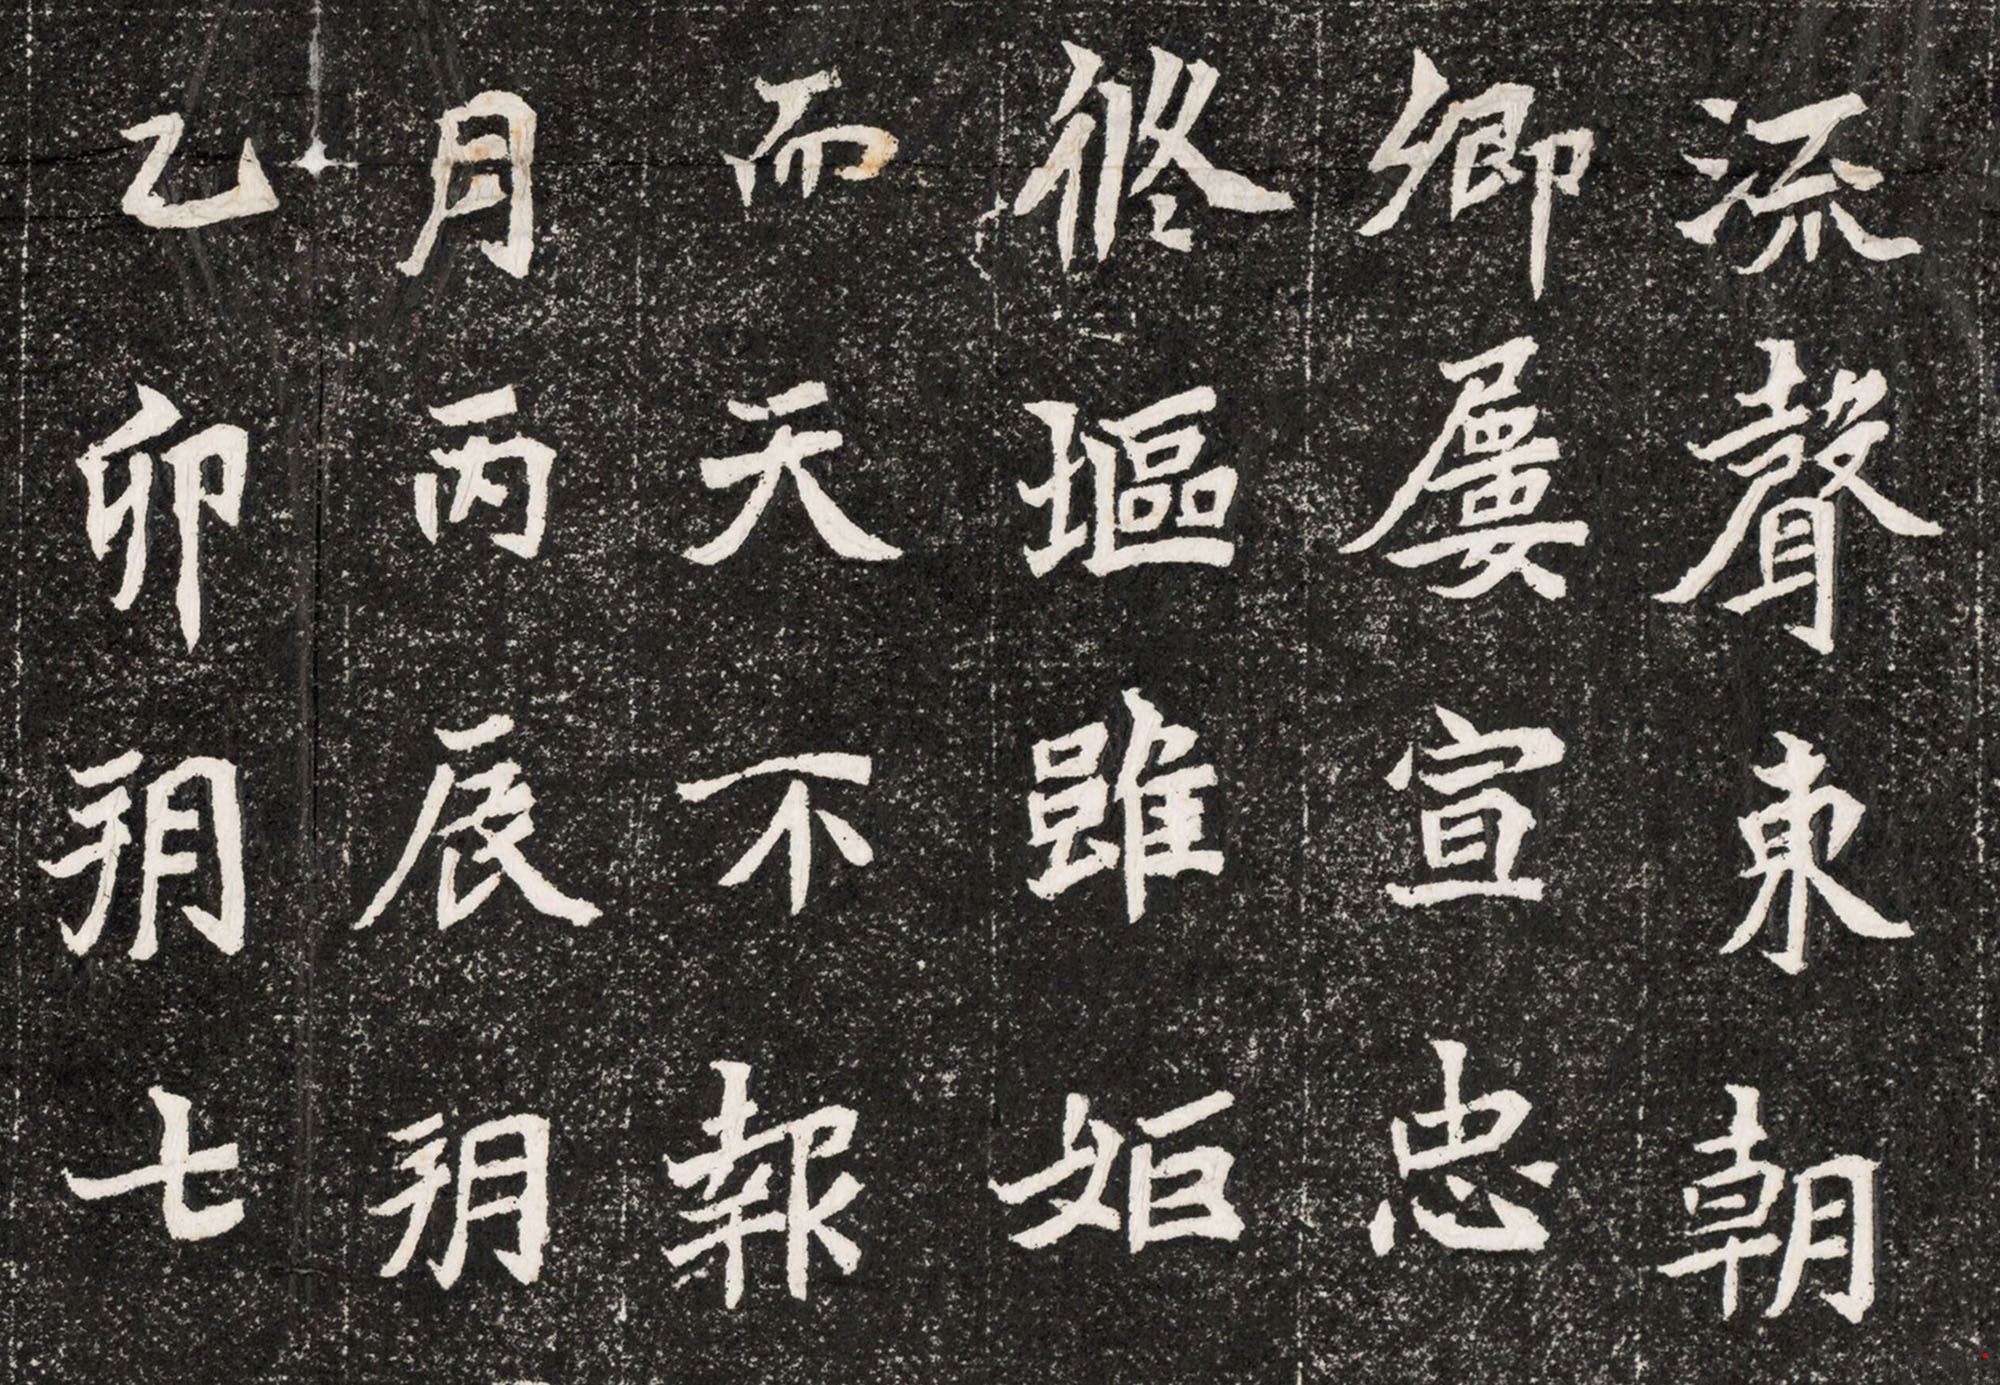 流聲東朝
卿屢宣忠
修塸雖姬
而天不報
月丙辰朔
乙卯朔七